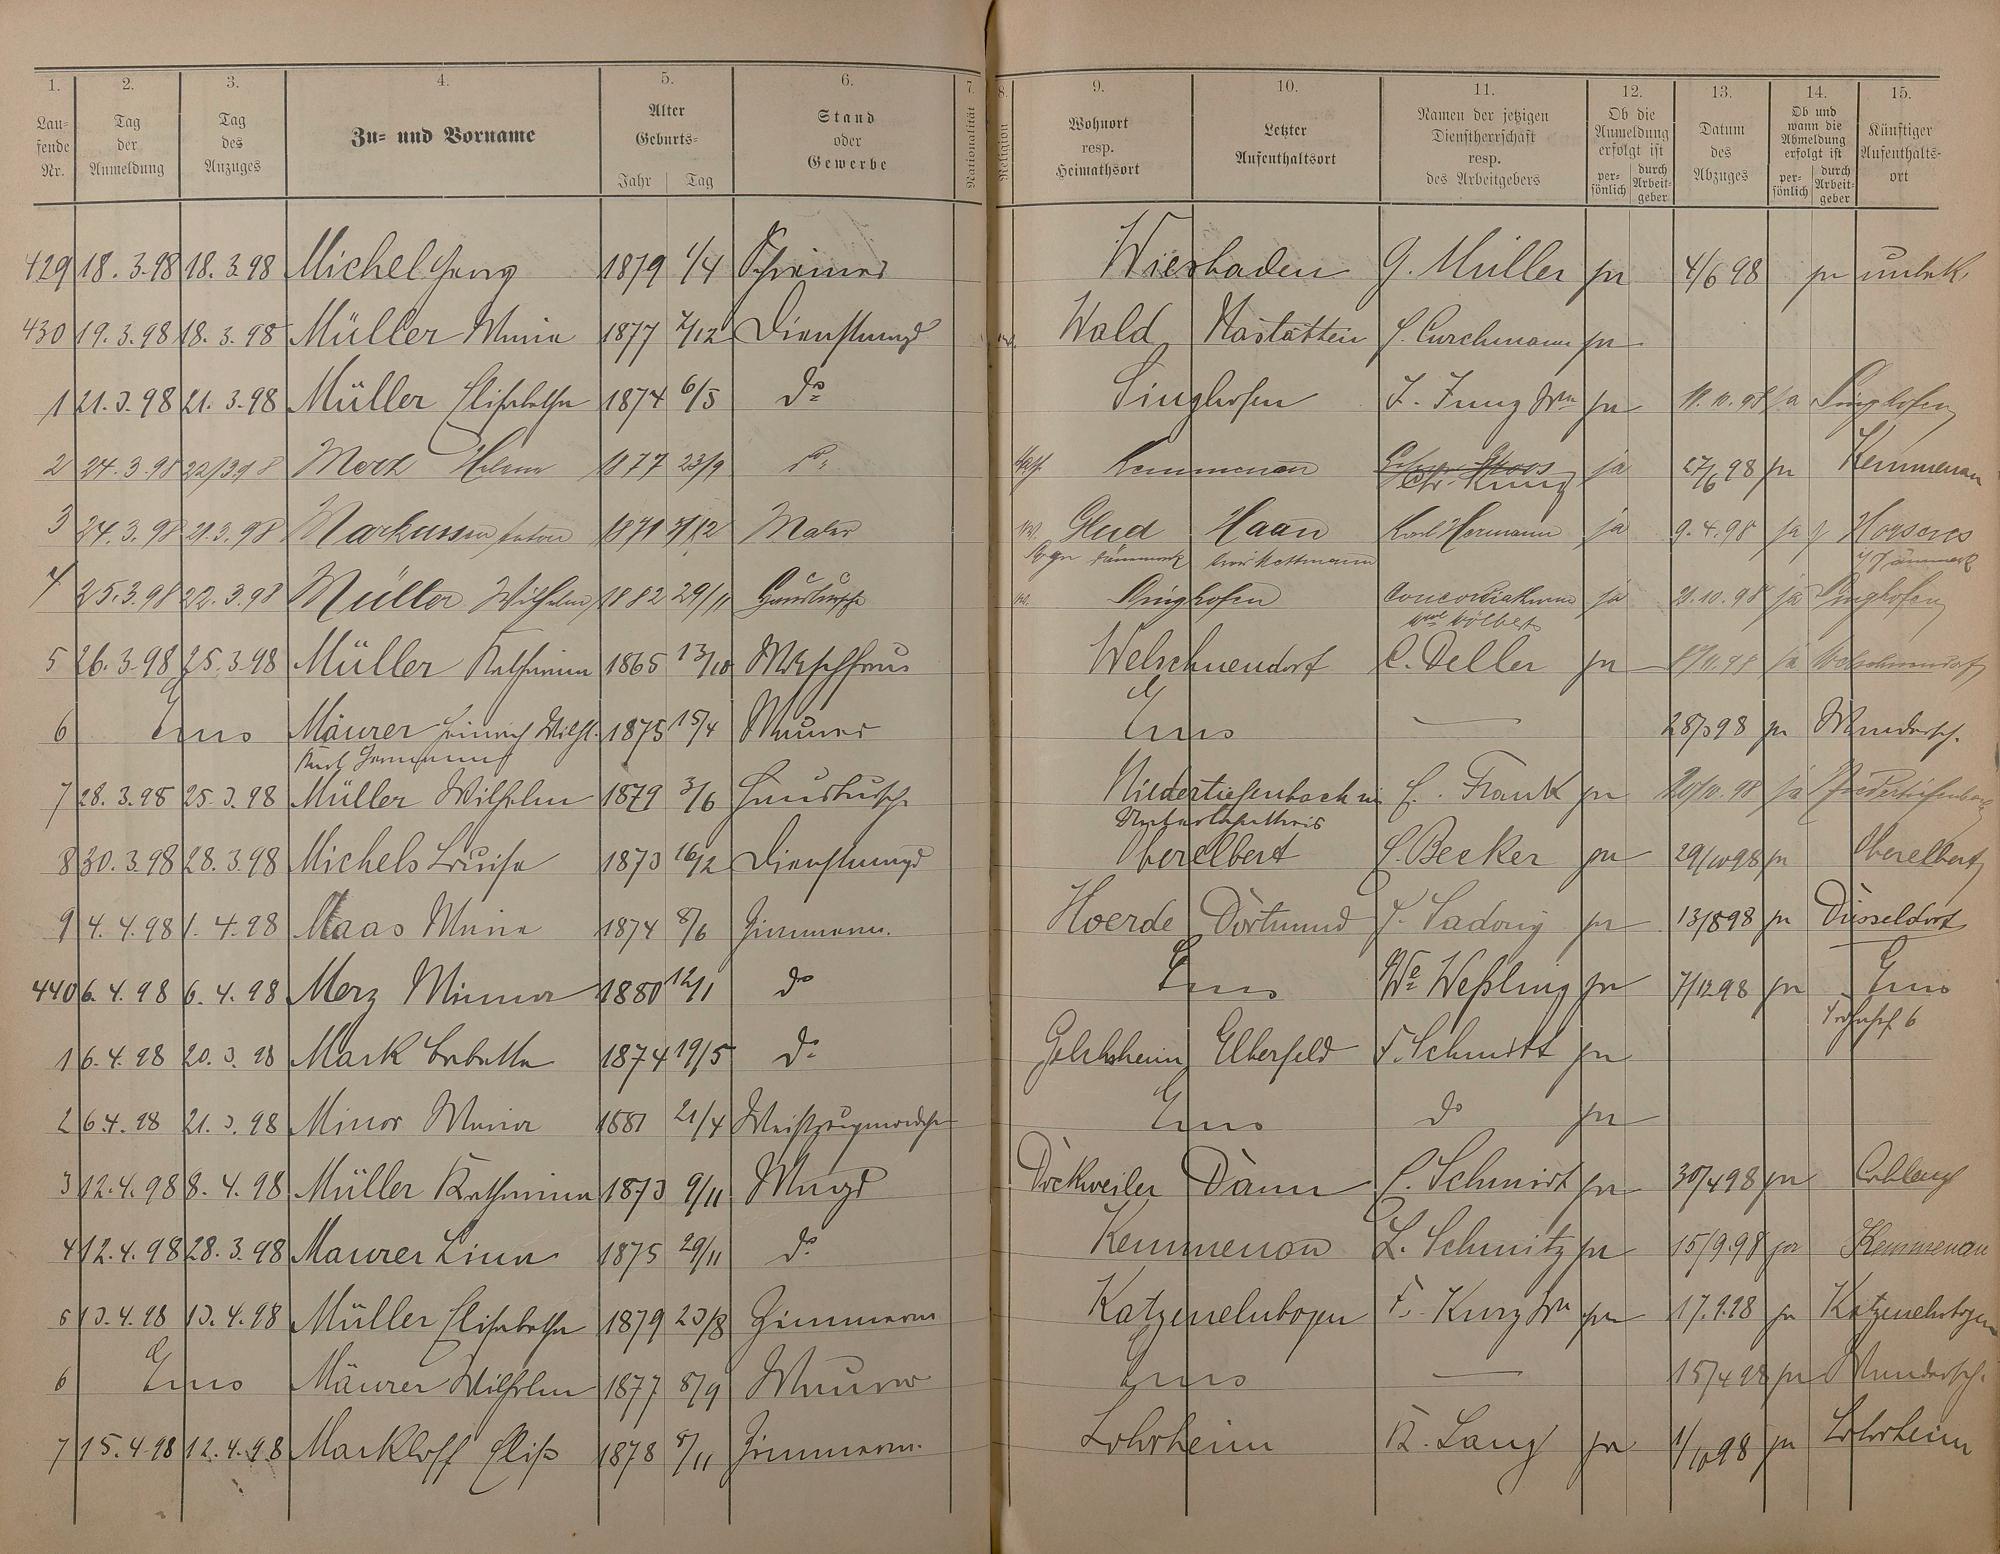 1. 2. 3. 4. 5. 6. 7. 8. 9. 10. 11. 12. 13. 14. 15.
Lau-fende Nr. Tag der Anmeldung Tag des Anzuges Zu- und Vorname Alter Geburts- Jahr Tag Stand oder Gewerbe Nationalität Religion Wohnort resp. Heimathsort Letzter Aufenthaltsort Namen der jetzigen Dienstherrschaft resp. des Arbeitgebers Ob die Anmeldung erfolgt ist per-sönlich durch Arbeit-geber Datum des Abzuges Ob und wann die Abmeldung erfolgt ist per-sönlich durch Arbeit-geber Künftiger Aufenthalts-ort
429 18. 3. 98 18. 3. 98 Michel Georg 1879 1/4 Schreiner Wiesbaden G. Müller ja 4/6 98 ja unbek.
430 19. 3. 98 18. 3. 98 Müller Maria 1877 7/12 Dienstmagd Wald Nastätten Curchmann ja
1 21. 3. 98 21. 3. 98 Müller Elisabethe 1874 6/5 do Singhofen J. Jung Wwe ja 11. 10. 98 ja Singhofen
2 24. 3. 98 22/3 98 Merz Helene 1877 23/9 do Kemmenau ja 27/6 98 ja Kemmenau
3 24. 3. 98 21. 3. 98 Markussen Anton 1871 Maler Glud Haan Karl Hermann ja 9. 4. 98 ja Horsens
Dänmark i/Dänmark
4 25. 3. 98 22. 3. 98 Müller Wilhelm 1882 29/11 Hausbursche Singhofen ja 21. 10. 98 ja Singhofen
5 26. 3. 98 25. 3. 98 Müller Katharina 1865 13/10 Waschfrau Welschneudorf C. Deller ja ja Welschneudorf
6 Ems Mäurer Heinrich Wilh. 1875 15/4 Maurer Ems — 28/3 98 ja Wandersch.
Karl Hermann
7 28. 3. 98 25. 3. 98 Müller Wilhelm 1879 3/6 Hausbursche Niedertiefenbach Frank ja ja Niedertiefenbach
8 30. 3. 98 28. 3. 98 Michels Louise 1873 16/2 Dienstmagd Oberelbert Becker ja 29/10 98 ja Oberelbert
9 4. 4. 98 1. 4. 98 Maas Maria 1874 8/6 Zimmerm. Hoerde Dortmund ja 13/8 98 ja Düsseldorf
440 6. 4. 98 6. 4. 98 Merz Minna 1880 12/1 do Ems Wwe Weßling ja 7/12 98 ja Ems
6
1 6. 4. 98 20. 3. 98 Mark Babette 1874 19/5 do Gelchsheim Elberfeld F. Schmitt ja
2 6. 4. 98 21. 3. 98 Minor Maria 1881 21/4 Ems do ja
3 12. 4. 98 8. 4. 98 Müller Katharina 1873 9/11 Magd Dockweiler Daun Schmidt ja 30/4 98 ja Coblenz
4 12. 4. 98 28. 3. 98 Maurer Lina 1875 29/11 do Kemmenau L. Schmitz ja 15/9. 98 ja Kemmenau
5 13. 4. 98 13. 4. 98 Müller Elisabethe 1879 23/8 Zimmerm Katzenelnbogen F. Kurz Wwe ja 17. 9. 98 ja Katzenelnbogen
6 Ems Mäurer Wilhelm 1877 8/9 Maurer Ems — 15/4 98 ja Wandersch.
7 15. 4. 98 12. 4. 98 Markloff Elis 1878 8/11 Zimmerm. Lohrheim K. Lang ja 1/10 98 ja Lohrheim